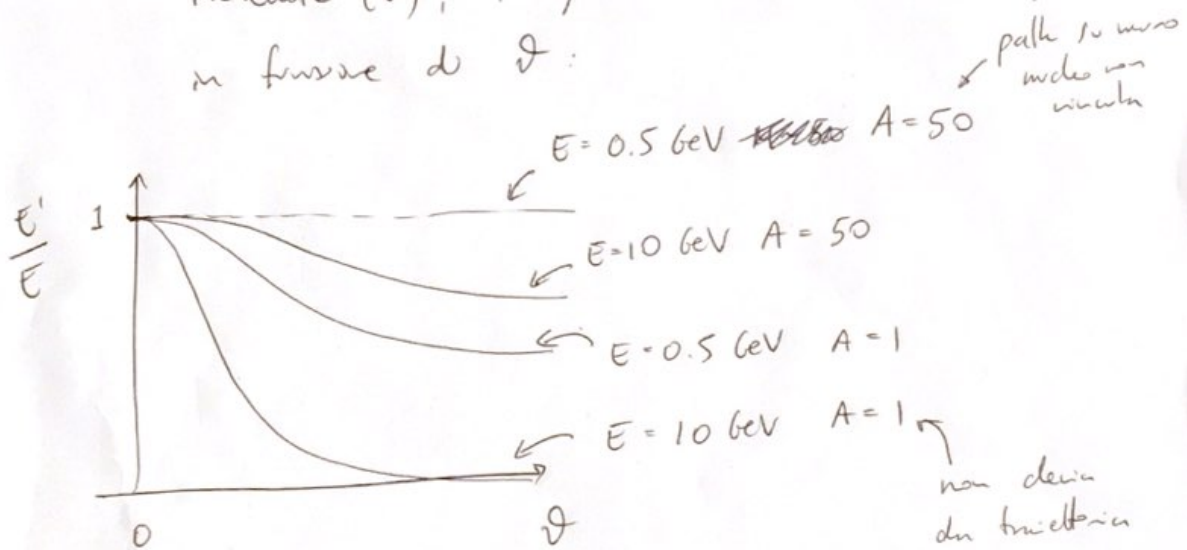 in funzione di θ:
palla su muro
nucleo non
E = 0.5 GeV A = 50
E'/E
1
E = 10 GeV A = 50
E = 0.5 GeV A = 1
E = 10 GeV A = 1
non devia
da traiettoria
0
θ